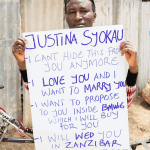 JUSTINA SYOKAU
I CANT HIDE THIS FROM
YOU ANYMORE
I LOVE YOU AND I
WANT TO MARRY YOU
I WANT TO PROPOSE
TO YOU INSIDE
WHICH I WILL BUY
FOR YOU
I WILL WED YOU
IN ZANZIBAR